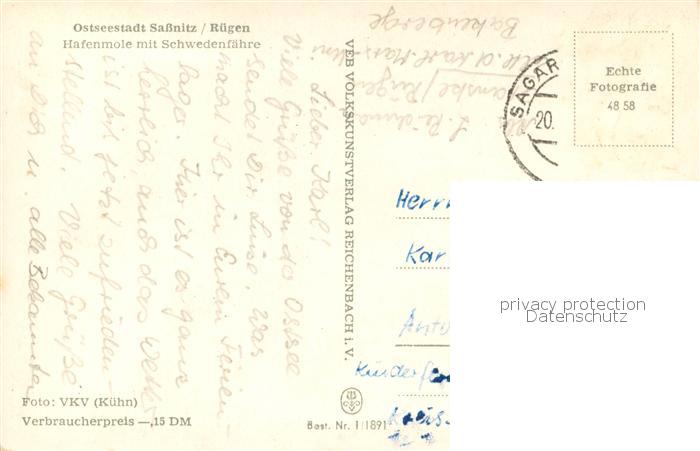 Ostseestadt Saßnitz / Rügen
Hafenmole mit Schwedenfähre
Lieber Karl!
Viel Grüße von der Ostsee
sendet Dir Luise. Was
macht Ihr in Euern Ferien-
tage. Hier ist es ganz
herrlich, auch das Wetter
ist bis jetzt zufrieden-
stellend. Viele Grüße
an Dich u. alle Bekannten
Foto: VKV (Kühn)
Verbraucherpreis —,15 DM
VEB VOLKSKUNSTVERLAG REICHENBACH i. V.
Best. Nr. I/1891
/Rügen
SAGAR
20.
Echte
Fotografie
48 58
Herrn
Kar
Kinder
Kreis
privacy protection
Datenschutz